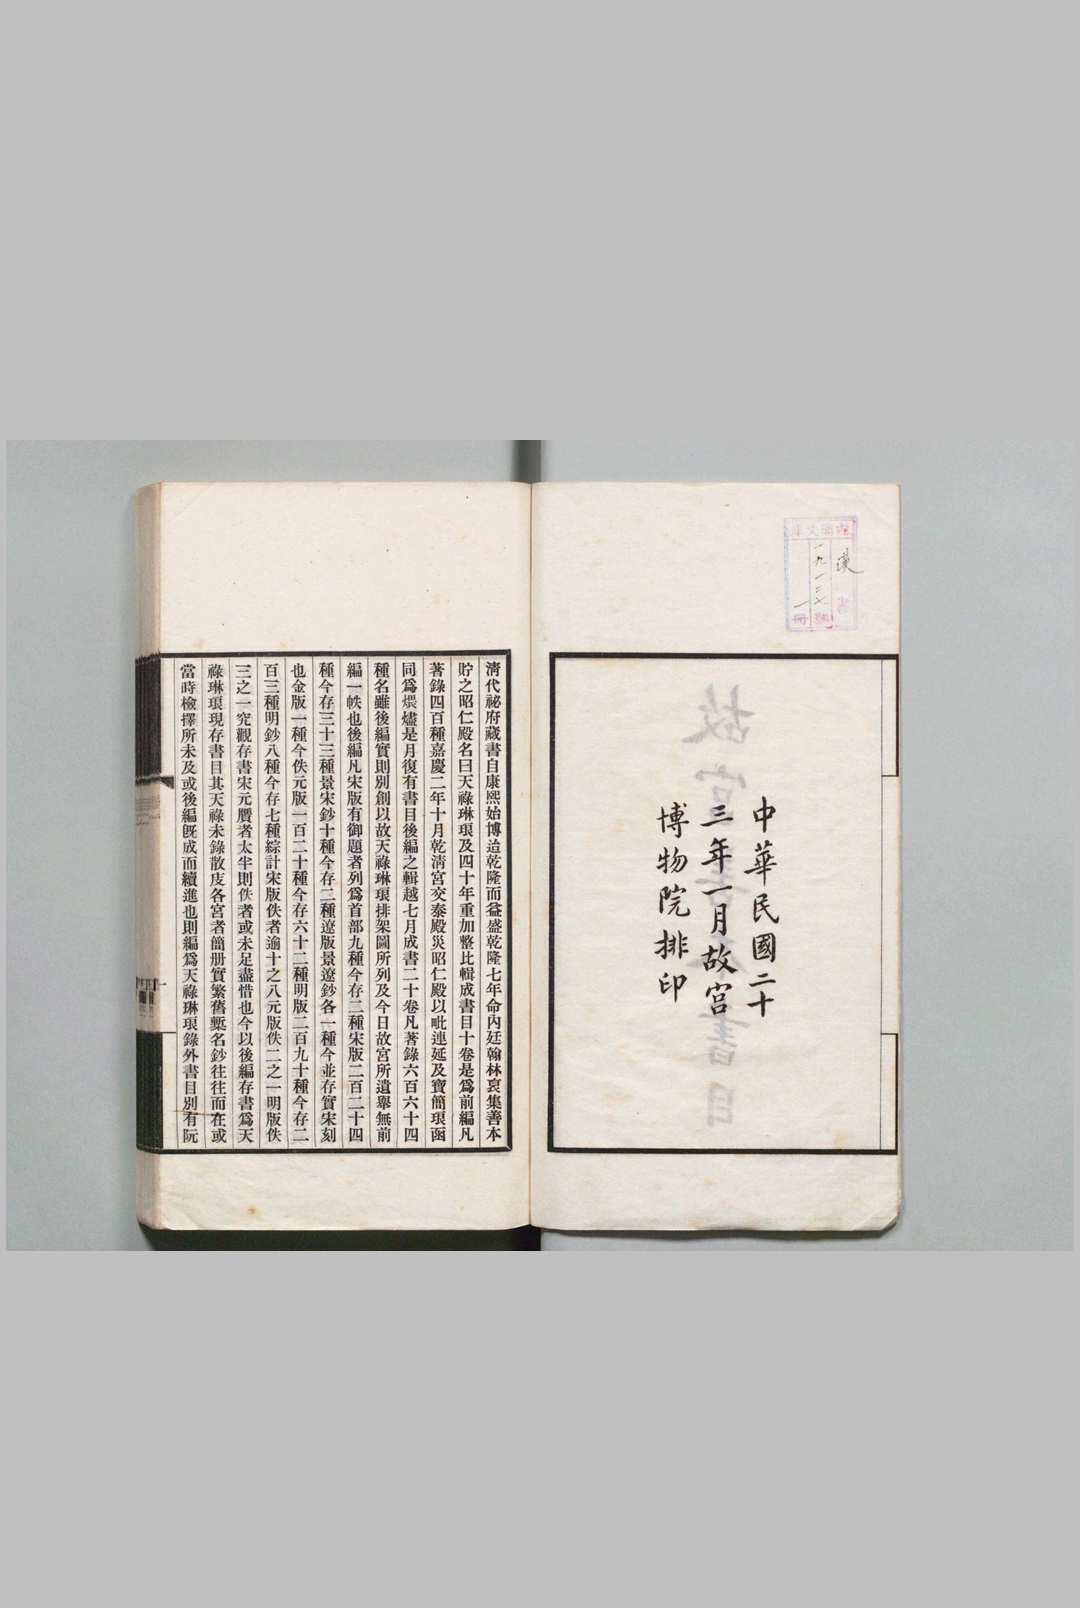 中華民國二十
三年一月故宮
博物院排印
清代祕府藏書自康熙始博迨乾隆而益盛乾隆七年命內廷翰林裒集善本
貯之昭仁殿名曰天祿琳琅及四十年重加整比輯成書目十卷是爲前編凡
著錄四百種嘉慶二年十月乾淸宮交泰殿災昭仁殿以毗連延及寶簡琅函
同爲煨燼是月復有書目後編之輯越七月成書二十卷凡著錄六百六十四
種名雖後編實則別創以故天祿琳琅排架圖所列及今日故宮所遺舉無前
編一帙也後編凡宋版有御題者列爲首部九種今存二種宋版二百二十四
種今存三十三種景宋鈔十種今存二種遼版景遼鈔各一種今並存實宋刻
也金版一種今佚元版一百二十種今存六十二種明版二百九十種今存二
百三種明鈔八種今存七種綜計宋版佚者逾十之八元版佚二之一明版佚
三之一究觀存書宋元贋者太半則佚者或未足盡惜也今以後編存書爲天
祿琳琅現存書目其天祿未錄散庋各宮者簡册實繁舊槧名鈔往往而在或
當時檢擇所未及或後編旣成而續進也則編爲天祿琳琅錄外書目別有阮
故宮善本書目
漢
書
一九一三七
號
一
冊